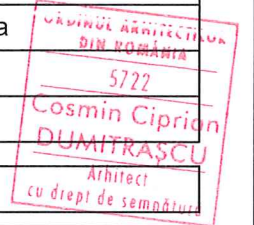 a
ORDINUL ARHITECȚILOR
DIN ROMÂNIA
5722
Cosmin Ciprian
DUMITRAȘCU
Arhitect
cu drept de semnătură